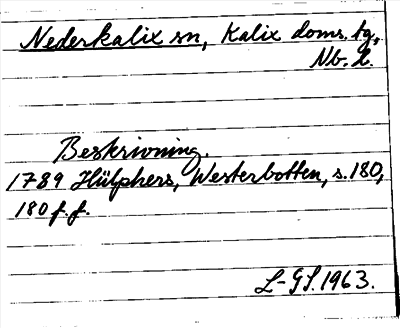 Nederkalix sn, Kalix doms. tg,
Nb. l.
Beskrivning.
1789 Hülphers, Westerbotten, s. 180,
180 f. f.
L-GS. 1963.